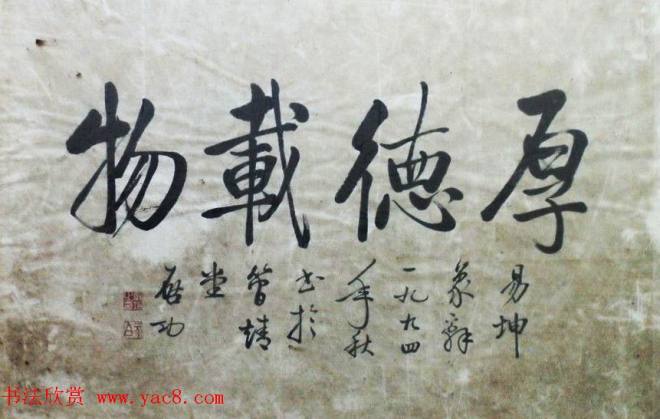 厚德載物
易坤
象辭
一九九四
年秋
書於
曾靖
堂
啟功
书法欣赏 www.yac8.com